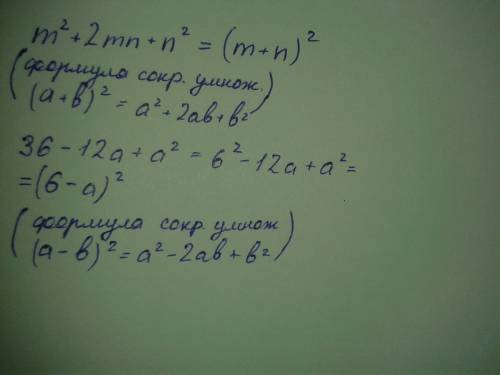 m² + 2mn + n² = (m+n)²
(формула сокр. умнож.)
(a+b)² = a² + 2ab + b²
36 - 12a + a² = 6² - 12a + a² =
= (6 - a)²
(формула сокр. умнож
(a - b)² = a² - 2ab + b²)